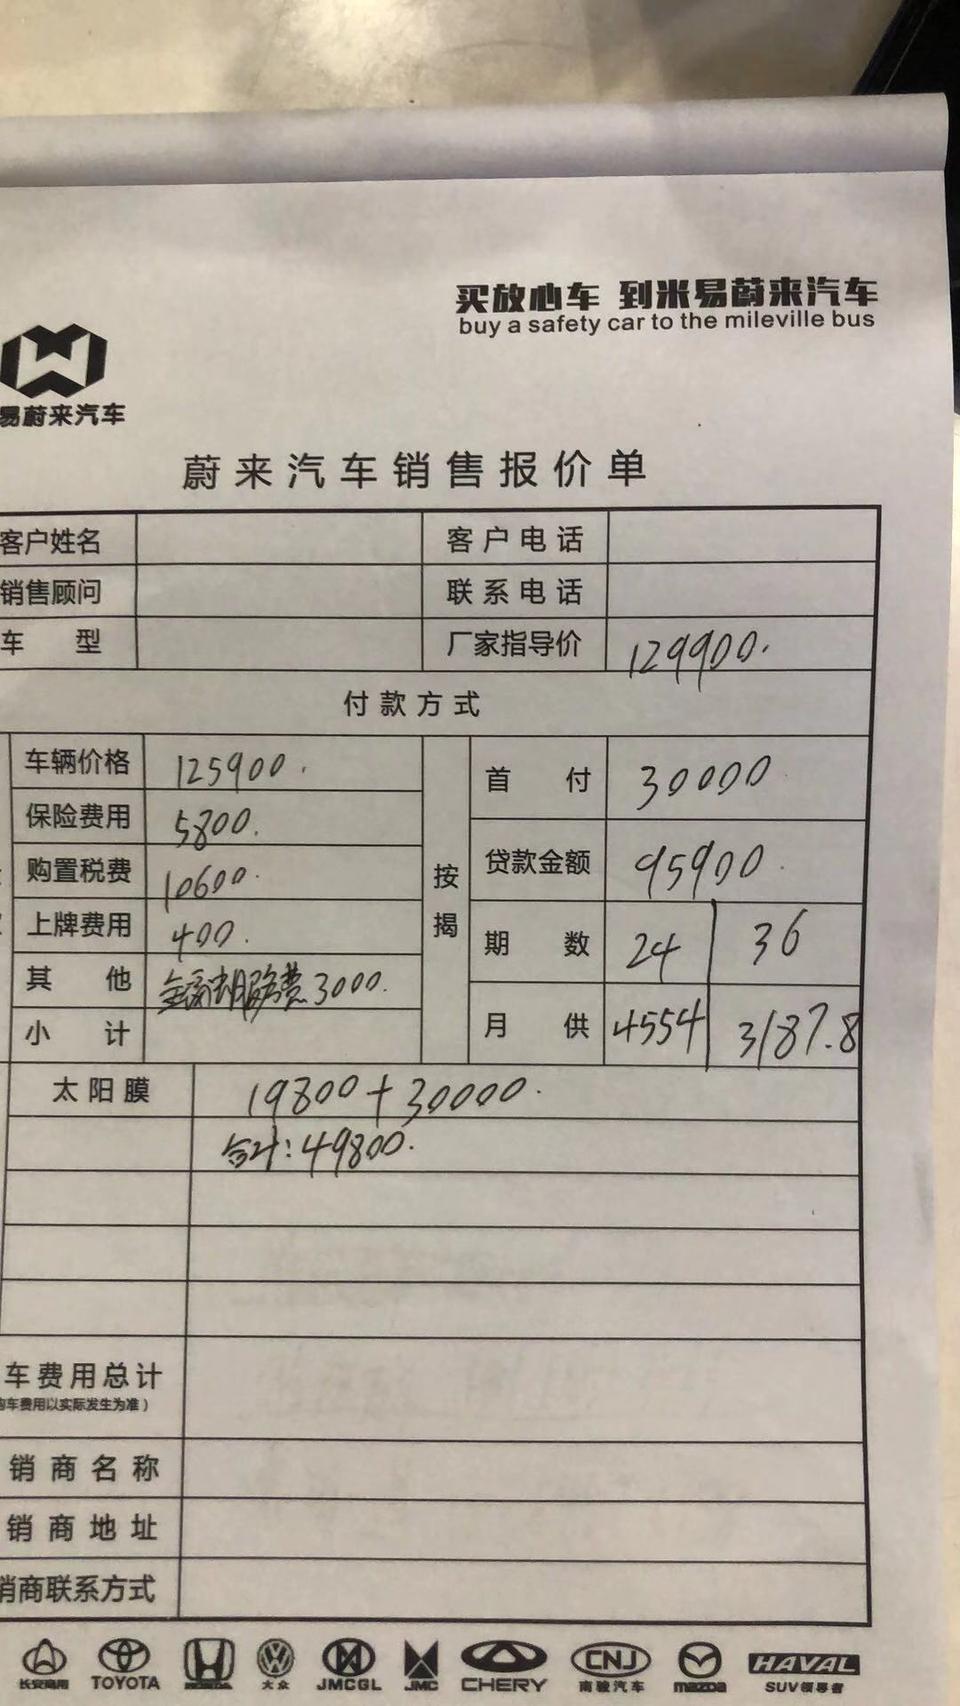 买放心车 到米易蔚来汽车
buy a safety car to the mileville bus
易蔚来汽车
蔚来汽车销售报价单
客户姓名 客户电话
销售顾问 联系电话
车型 厂家指导价 129900.
付款方式
车辆价格 125900.
保险费用 5800.
购置税费 10600.
上牌费用 400.
其他 3000.
小计
按揭
首付 30000
贷款金额 95900.
期数 24 36
月供 4554 3187.8
太阳膜 19800+30000.
合计:49800.
车费用总计
购车费用以实际发生为准)
销商名称
销商地址
销商联系方式
长安商用 TOYOTA HONDA 大众 JMCGL JMC CHERY CNJ 南骏汽车 mazda HAVAL SUV领导者